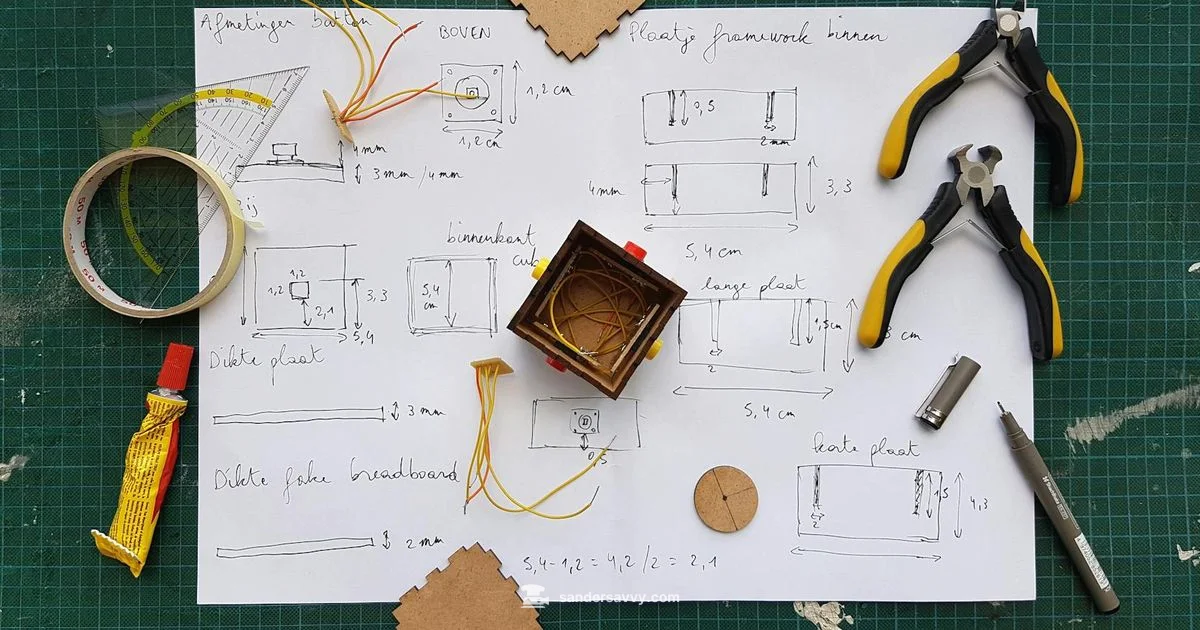 Afmetingen button
BOVEN
Plaatje framework binnen
1,2 cm
1,2 cm
0,5
2mm
4mm
3mm /4mm
4mm
3,3
5,4 cm
binnenkant
cub
1,2
1,2
2,1
3,3
5,4
5,4
cm
lange plaat
1,5cm
2
3 cm
5,4 cm
Dikte plaat
3mm
0,5
korte plaat
1,5
2
4,3
Dikte fake breadboard
2 mm
5,4-1,2 = 4,2 /2 = 2,1
sandersavvy.com
50 M